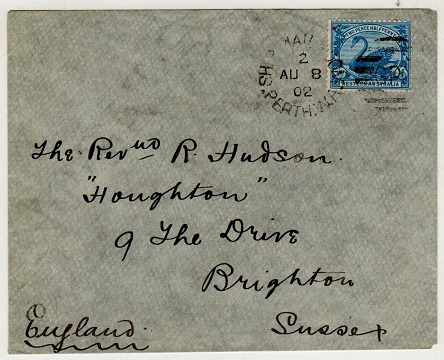 TWO PENCE HALFPENNY
WESTERN AUSTRALIA
2
AU 8
02
PERTH.W.A
The Revnd R. Hudson.
"Houghton"
9 The Drive
Brighton
England. Sussex